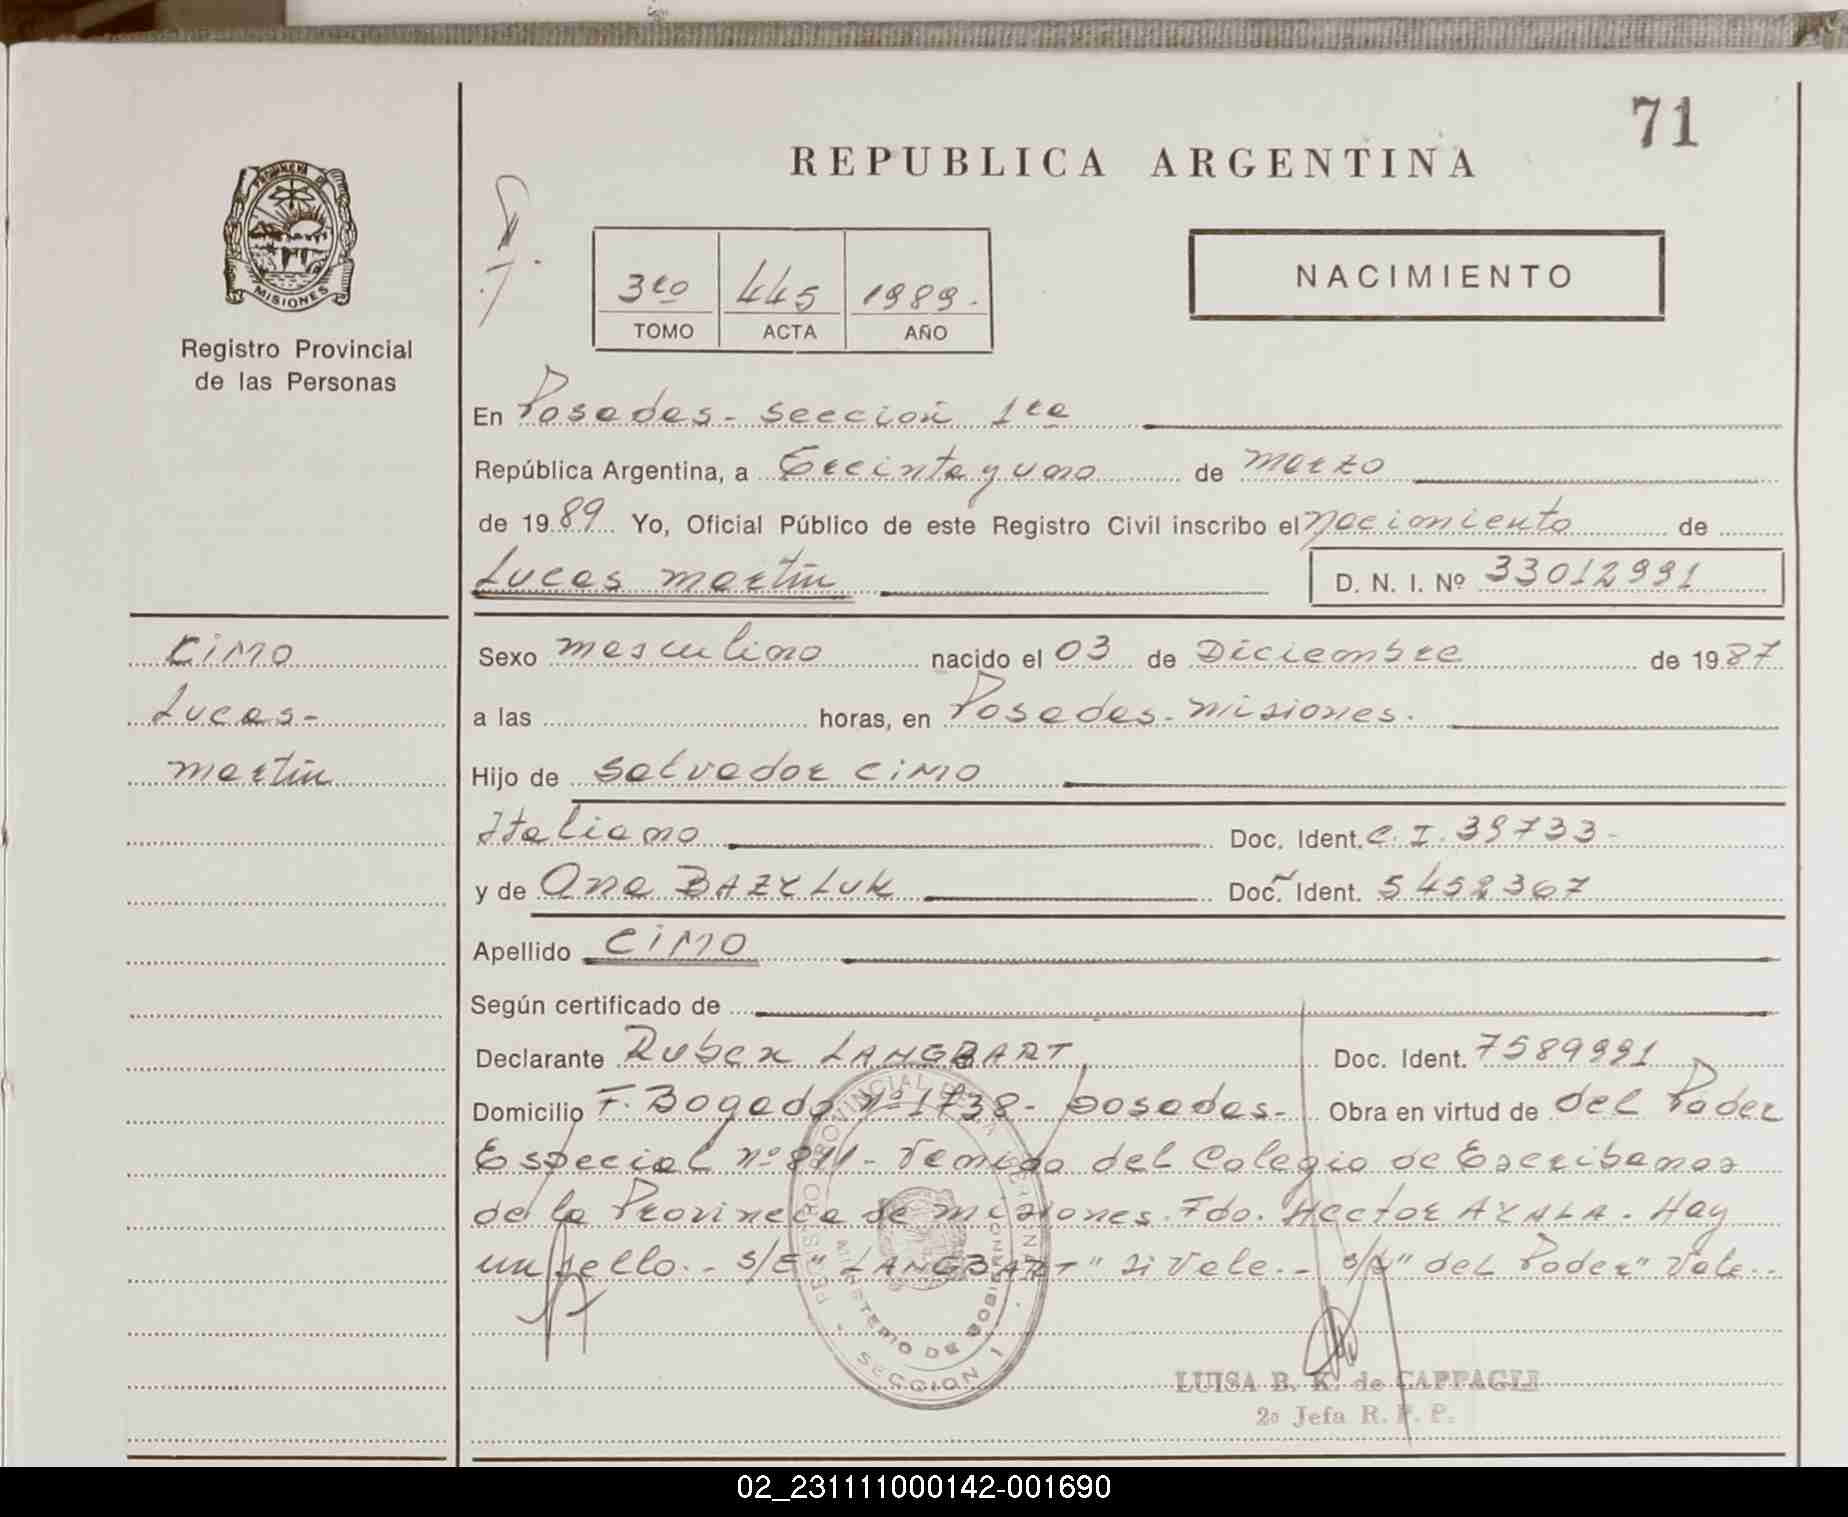 71
REPUBLICA ARGENTINA
PROVINCIA DE
MISIONES
Registro Provincial
de las Personas
3ro 445 1989.
TOMO ACTA AÑO
NACIMIENTO
En Posadas - sección 1ra
República Argentina, a treinta y uno de marzo
de 1989 Yo, Oficial Público de este Registro Civil inscribo el nacimiento de
Lucas martín D. N. I. Nº 33012991
CIMO
Lucas-
martín
Sexo masculino nacido el 03 de Diciembre de 1987
a las horas, en Posadas - misiones.
Hijo de Salvador CIMO
Italiano Doc. Ident. C. I. 39733-
y de Ana BAZYLUK Doc. Ident. 5452367
Apellido CIMO
Según certificado de
Declarante Ruben LANGBART Doc. Ident. 7589991
Domicilio F. Bogado nº 1738 - posadas - Obra en virtud de del Poder
Especial nº 811 - Venido del Colegio de Escribanos
de la Provincia de misiones. Fdo. Hector AYALA. Hay
un sello.- S/E "LANGBART" si Vale.- "del Poder" Vale..
REGISTRO PROVINCIAL DE LAS PERSONAS
MINISTERIO DE GOBIERNO
SECCION 1
LUISA B. K. de CAPPAGLI
2º Jefa R. P. P.
02_231111000142-001690